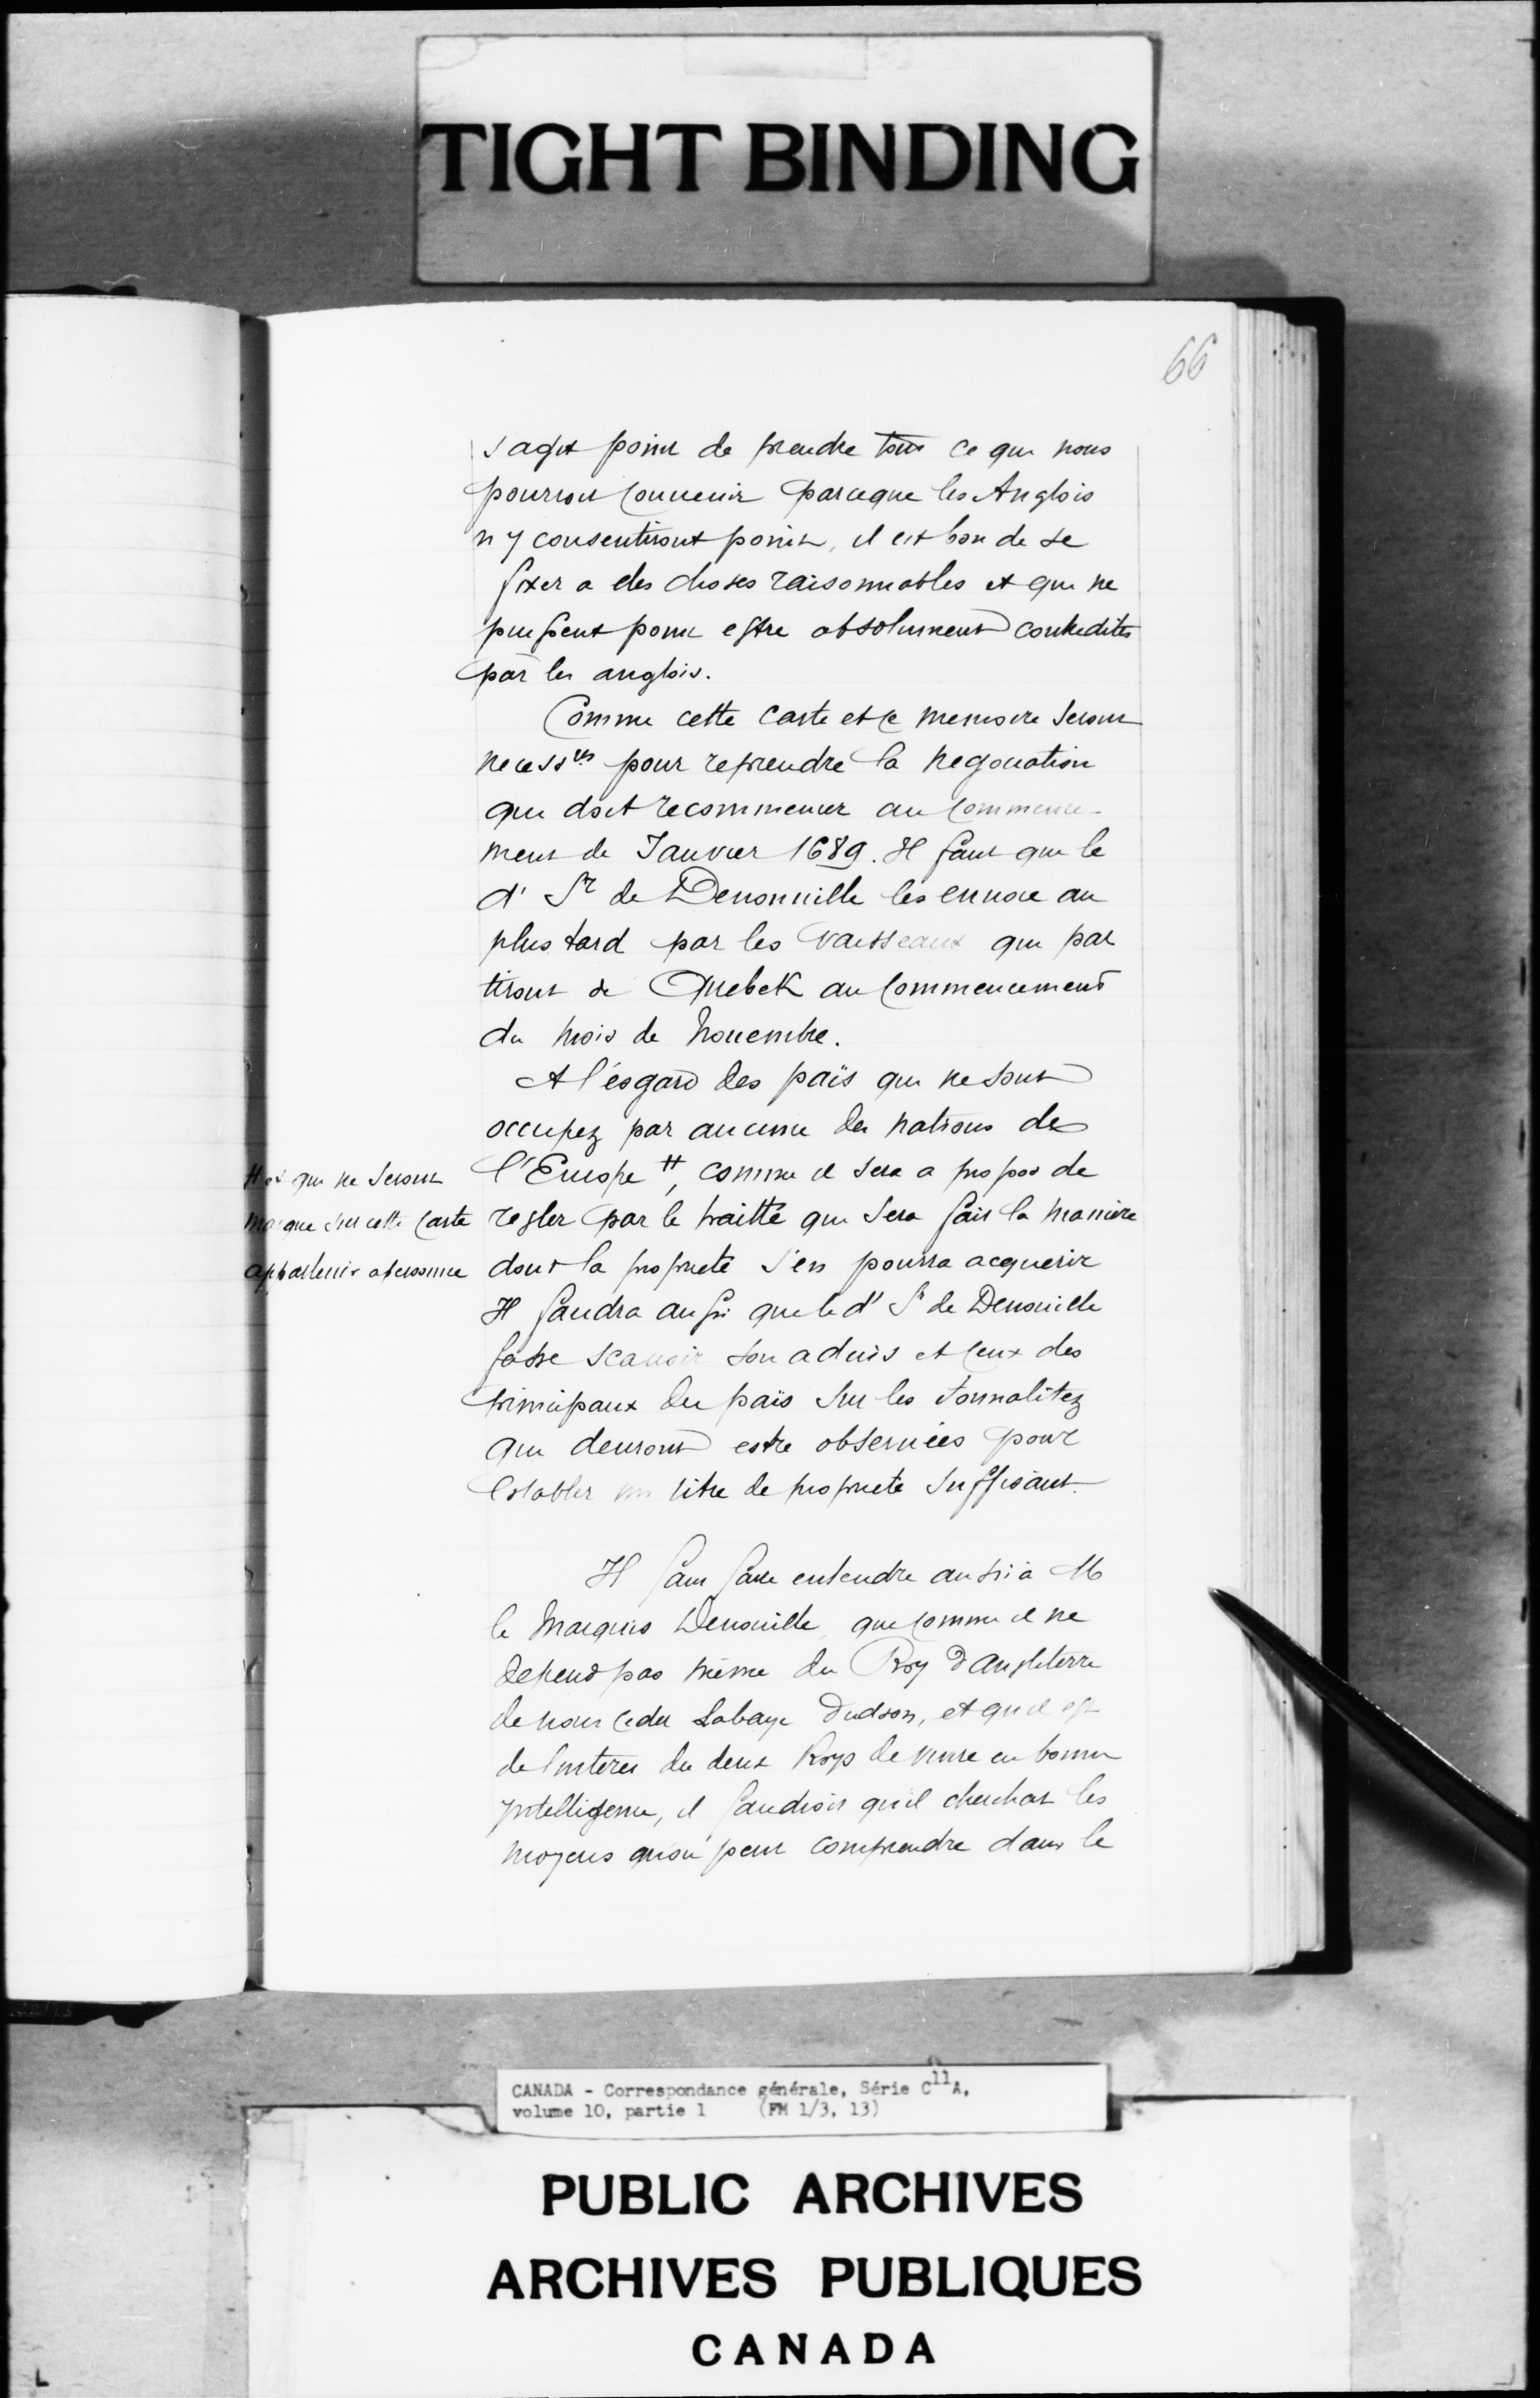 TIGHT BINDING
66
s agit point de prendre tout ce qui nous
pourroit Convenir parceque les Anglois
n y consentiront point, il est bon de se
fixer a des choses raisonnables et qui ne
puissent point estre absolument contredites
par les anglois.
Comme cette Carte et ce memoire seront
necessres pour reprendre la negociation
qui doit recommencer au commence-
ment de Janvier 1689. Il faut que le
dt Sr de Denonville les ennoie au
plus tard par les vaisseaux qui par
tiront de Quebek au commencement
du mois de novembre.
A l'ésgard des païs qui ne sont
occupez par aucune des nations de
l'Europe #, comme il sera a propos de
# et qui ne seront
marque sur cette Carte
appartenir a personne
regler par le traitté qui sera fait la maniere
dont la propriete s'en pourra acquerir
Il faudra aussi que le dt Sr de Denonville
fasse scavoir son advis et ceux des
principaux du païs sur les formalitez
qui devront estre observées pour
establir un titre de propriete suffisant.
Il faut faire entendre aussi à M
le Marquis Denonville que comme il ne
depend pas même du Roy d'Angleterre
de nous ceder Labaye Dudson, et quil est
de linterest des deux Roys de vivre en bonne
yntelligence, il faudroit quil cherchat les
moyens qu'on peut comprendre dans le
CANADA - Correspondance générale, Série C11A,
volume 10, partie 1 (FM 1/3, 13)
PUBLIC ARCHIVES
ARCHIVES PUBLIQUES
CANADA
L